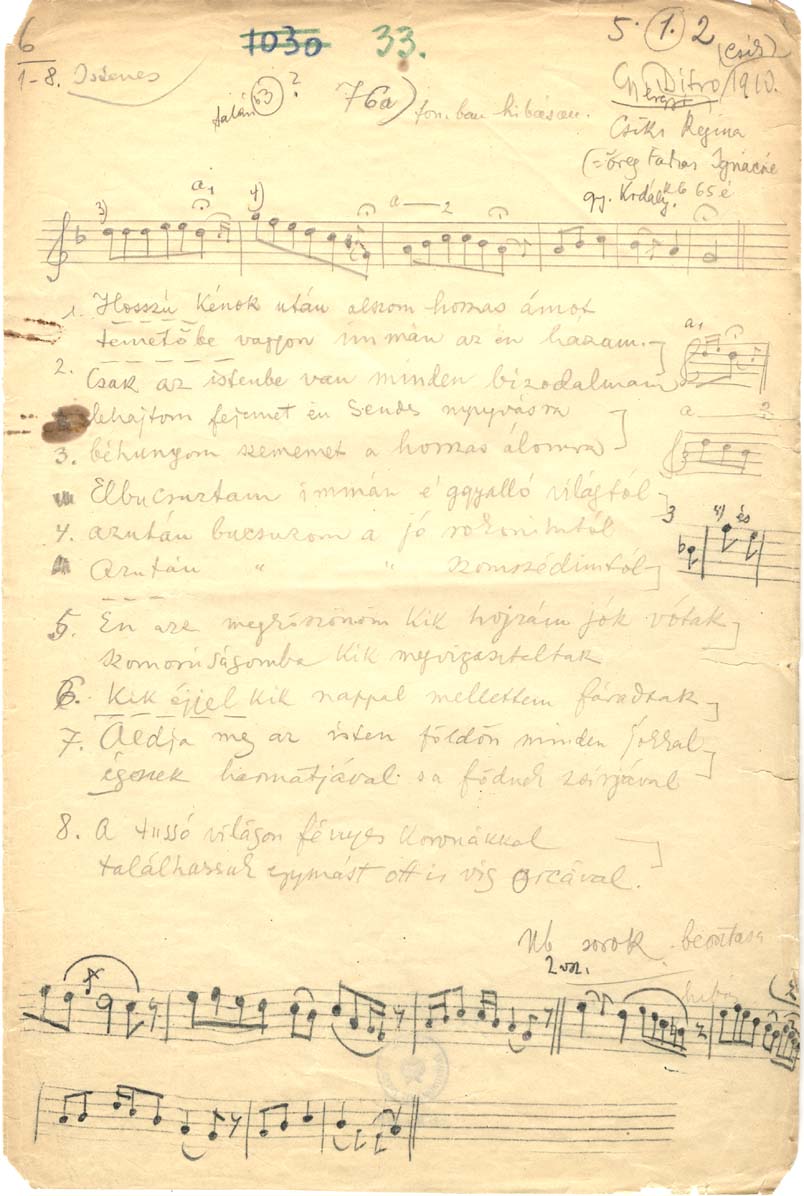 6
1-8. Istenes
1030 33.
5. 1. 2 (Csík)
Gyergyó Ditró 1910.
talán 63 ?
76a) fon. ban hibásan.
Csiki Regina
(=öreg Fazakas Ignácné
gy. Kodály 65 é
3) a1 4) a — 2
1. Hosszú kénok után alszom hosszas ámot
temetőbe vagyon immán az én házam.
a1
2. Csak az istenbe van minden bizodalmam
lehajtom fejemet én csendes nyugvásra
a — 2
3. béhunyom szememet a hosszas álomra
Elbucsuztam immán é
világtól
3 4) és
4. azután bucsuzom a jó rokonimtól
Azután " " szomszédimtól
5. Én azt megköszönöm kik hojzám jók vótak
szomorúságomba kik megvigasztaltak
6. Kik éjjel kik nappal mellettem fáradtak
7. Áldja meg az isten földön minden jókkal
égenek harmatjával s a fődnek zsirjával
8. A tussó világon fényes koronákkal
találhassuk egymást ott is vig orcával.
Nb sorok beosztása
2 vsz.
hibás